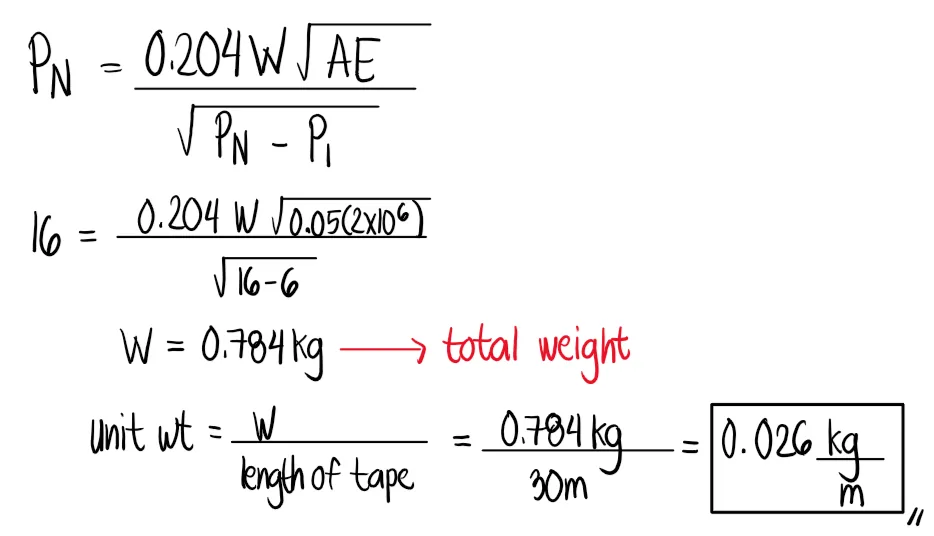 P_N = 0.204W√AE / √P_N - P_1
16 = 0.204 W √0.05(2x10⁶) / √16-6
W = 0.784 kg → total weight
unit wt = W / length of tape = 0.784 kg / 30m = 0.026 kg / m //